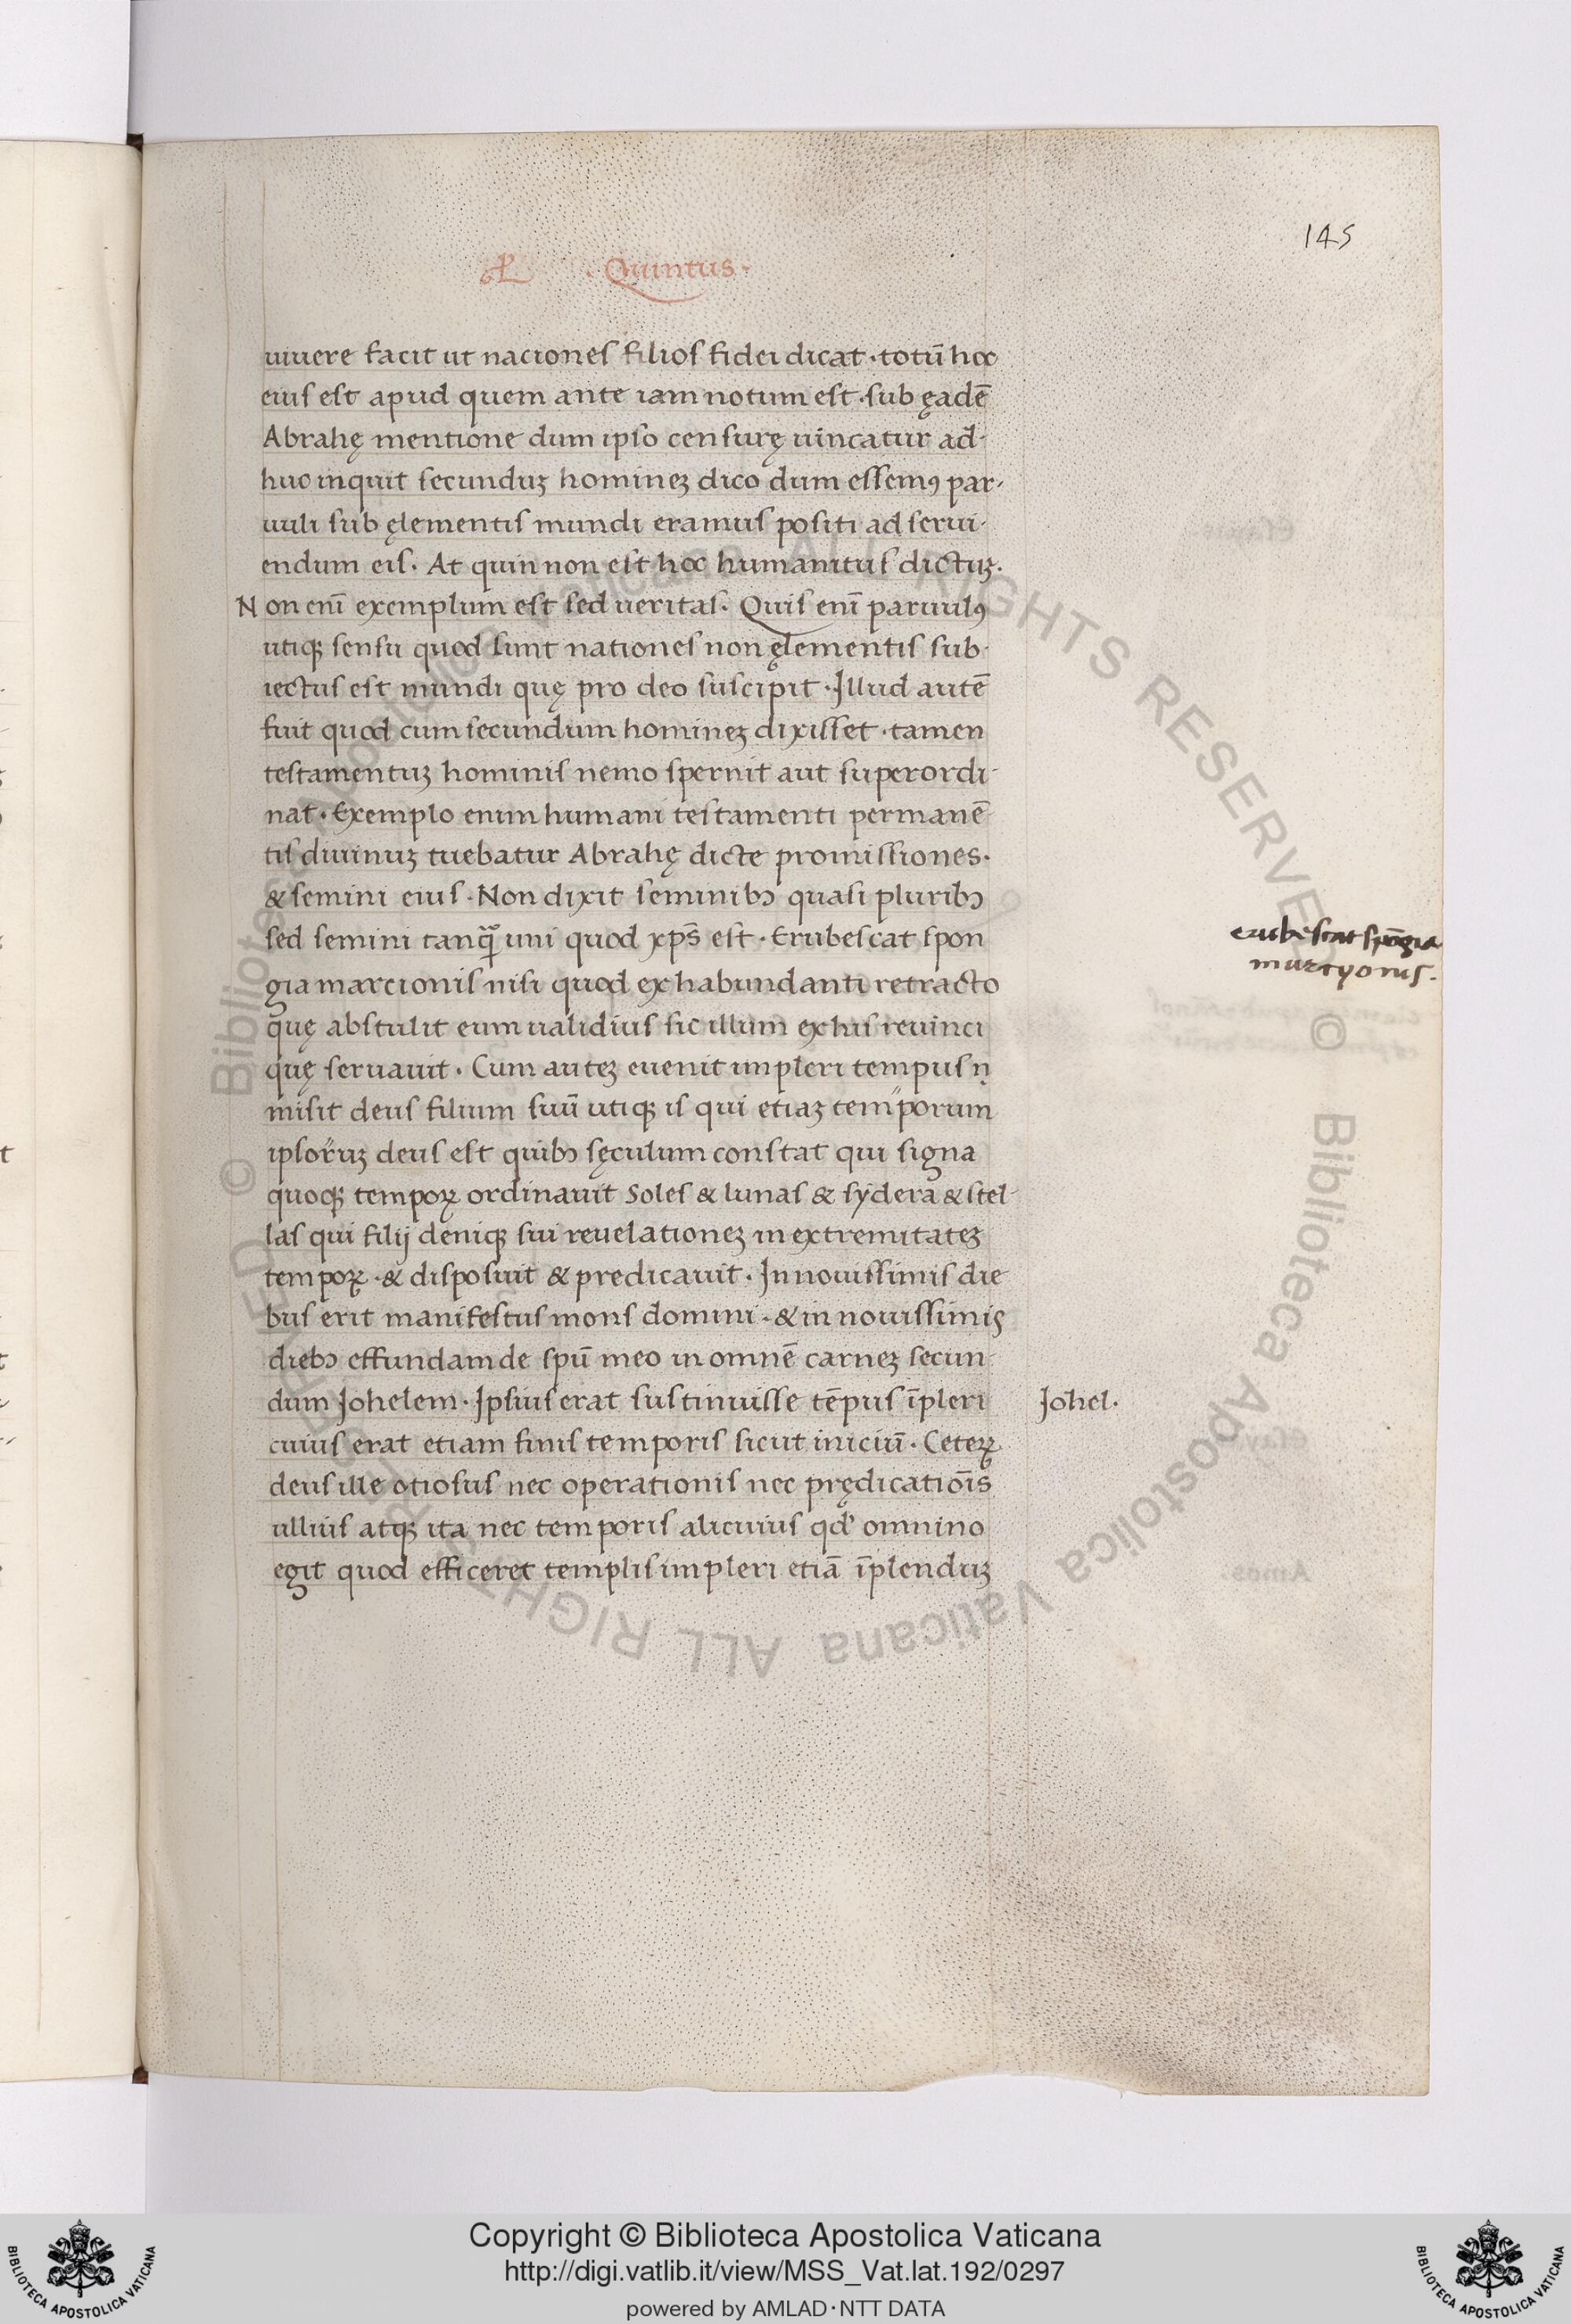 145
·Quintus·
uiuere facit ut naciones filios fidei dicat · totū hoc
eius est apud quem ante iam notum est · sub ęadē
Abrahę mentione dum ipso censurę uincatur ad-
huc inquit secunduꝫ homineꝫ dico dum essemꝰ par-
uuli sub ęlementis mundi eramus positi ad serui-
endum eis. At quin non est hoc humanitus dictuꝫ.
Non enī exemplum est sed ueritas. Quis enī paruulꝰ
utiqꝫ sensu quod sunt nationes non ęlementis sub-
iectus est mundi quę pro deo suscipit · Illud autē
fuit quod cum secundum homineꝫ dixisset · tamen
testamentuꝫ hominis nemo spernit aut superordi-
nat · Exemplo enim humani testamenti permanē-
tis diuinuꝫ tuebatur Abrahę dicte promissiones.
& semini eius · Non dixit seminibꝫ quasi pluribꝫ
sed semini tanꝙ̄ uni quod xp̄s est · Erubescat spon
gia marcionis nisi quod ex habundanti retracto
quę abstulit eum ualidius sic illum ex his reuinci
quę seruauit. Cum auteꝫ euenit impleri tempus ṇ
misit deus filium suū utiqꝫ is qui etiaꝫ temporum
ipsoruꝫ deus est quibꝫ sęculum constat qui signa
quoqꝫ tempoꝝ ordinauit Soles & lunas & sydera & stel-
las qui filij deniqꝫ sui reuelationeꝫ in extremitateꝫ
tempoꝝ · & disposuit & predicauit. In nouissimis die
bus erit manifestus mons domini · & in nouissimis
diebꝫ effundam de spū meo in omnē carneꝫ secun-
dum Johelem · Ipsius erat sustinuisse tēpus īpleri
cuius erat etiam finis temporis sicut iniciū · Ceteꝝ
deus ille otiosus nec operationis nec prędicatiōis
ullius atqꝫ ita nec temporis alicuius qd' omnino
egit quod efficeret templis impleri etiā īplenduꝫ
erubescat spōgia
martyonis.
Johel.
© Biblioteca Apostolica Vaticana ALL RIGHTS RESERVED © Biblioteca Apostolica Vaticana ALL RIGHTS RESERVED
Copyright © Biblioteca Apostolica Vaticana
http://digi.vatlib.it/view/MSS_Vat.lat.192/0297
powered by AMLAD·NTT DATA
BIBLIOTECA APOSTOLICA VATICANA
BIBLIOTECA APOSTOLICA VATICANA